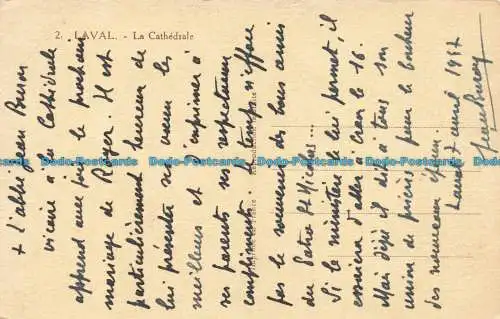 2. LAVAL. - La Cathédrale
+ L'abbé Jean
vicaire à la Cathédrale
apprend avec joie le prochain
mariage de Roger. Il est
particulièrement heureux de
lui présenter ses vœux les
meilleurs et d'exprimer à
ses parents ses respectueux
compliments. Le temps n'efface
pas le souvenir des bons amis
du Patro St Michel...
Si le ministère le lui permet, il
essaiera d'aller à Craon le 16.
Mais déjà il dit à tous son
union de prières pour le bonheur
des nouveaux époux.
Laval 7 avril 1937
Imprimé en France
Doby-Postcards Doby-Postcards Doby-Postcards Doby-Postcards